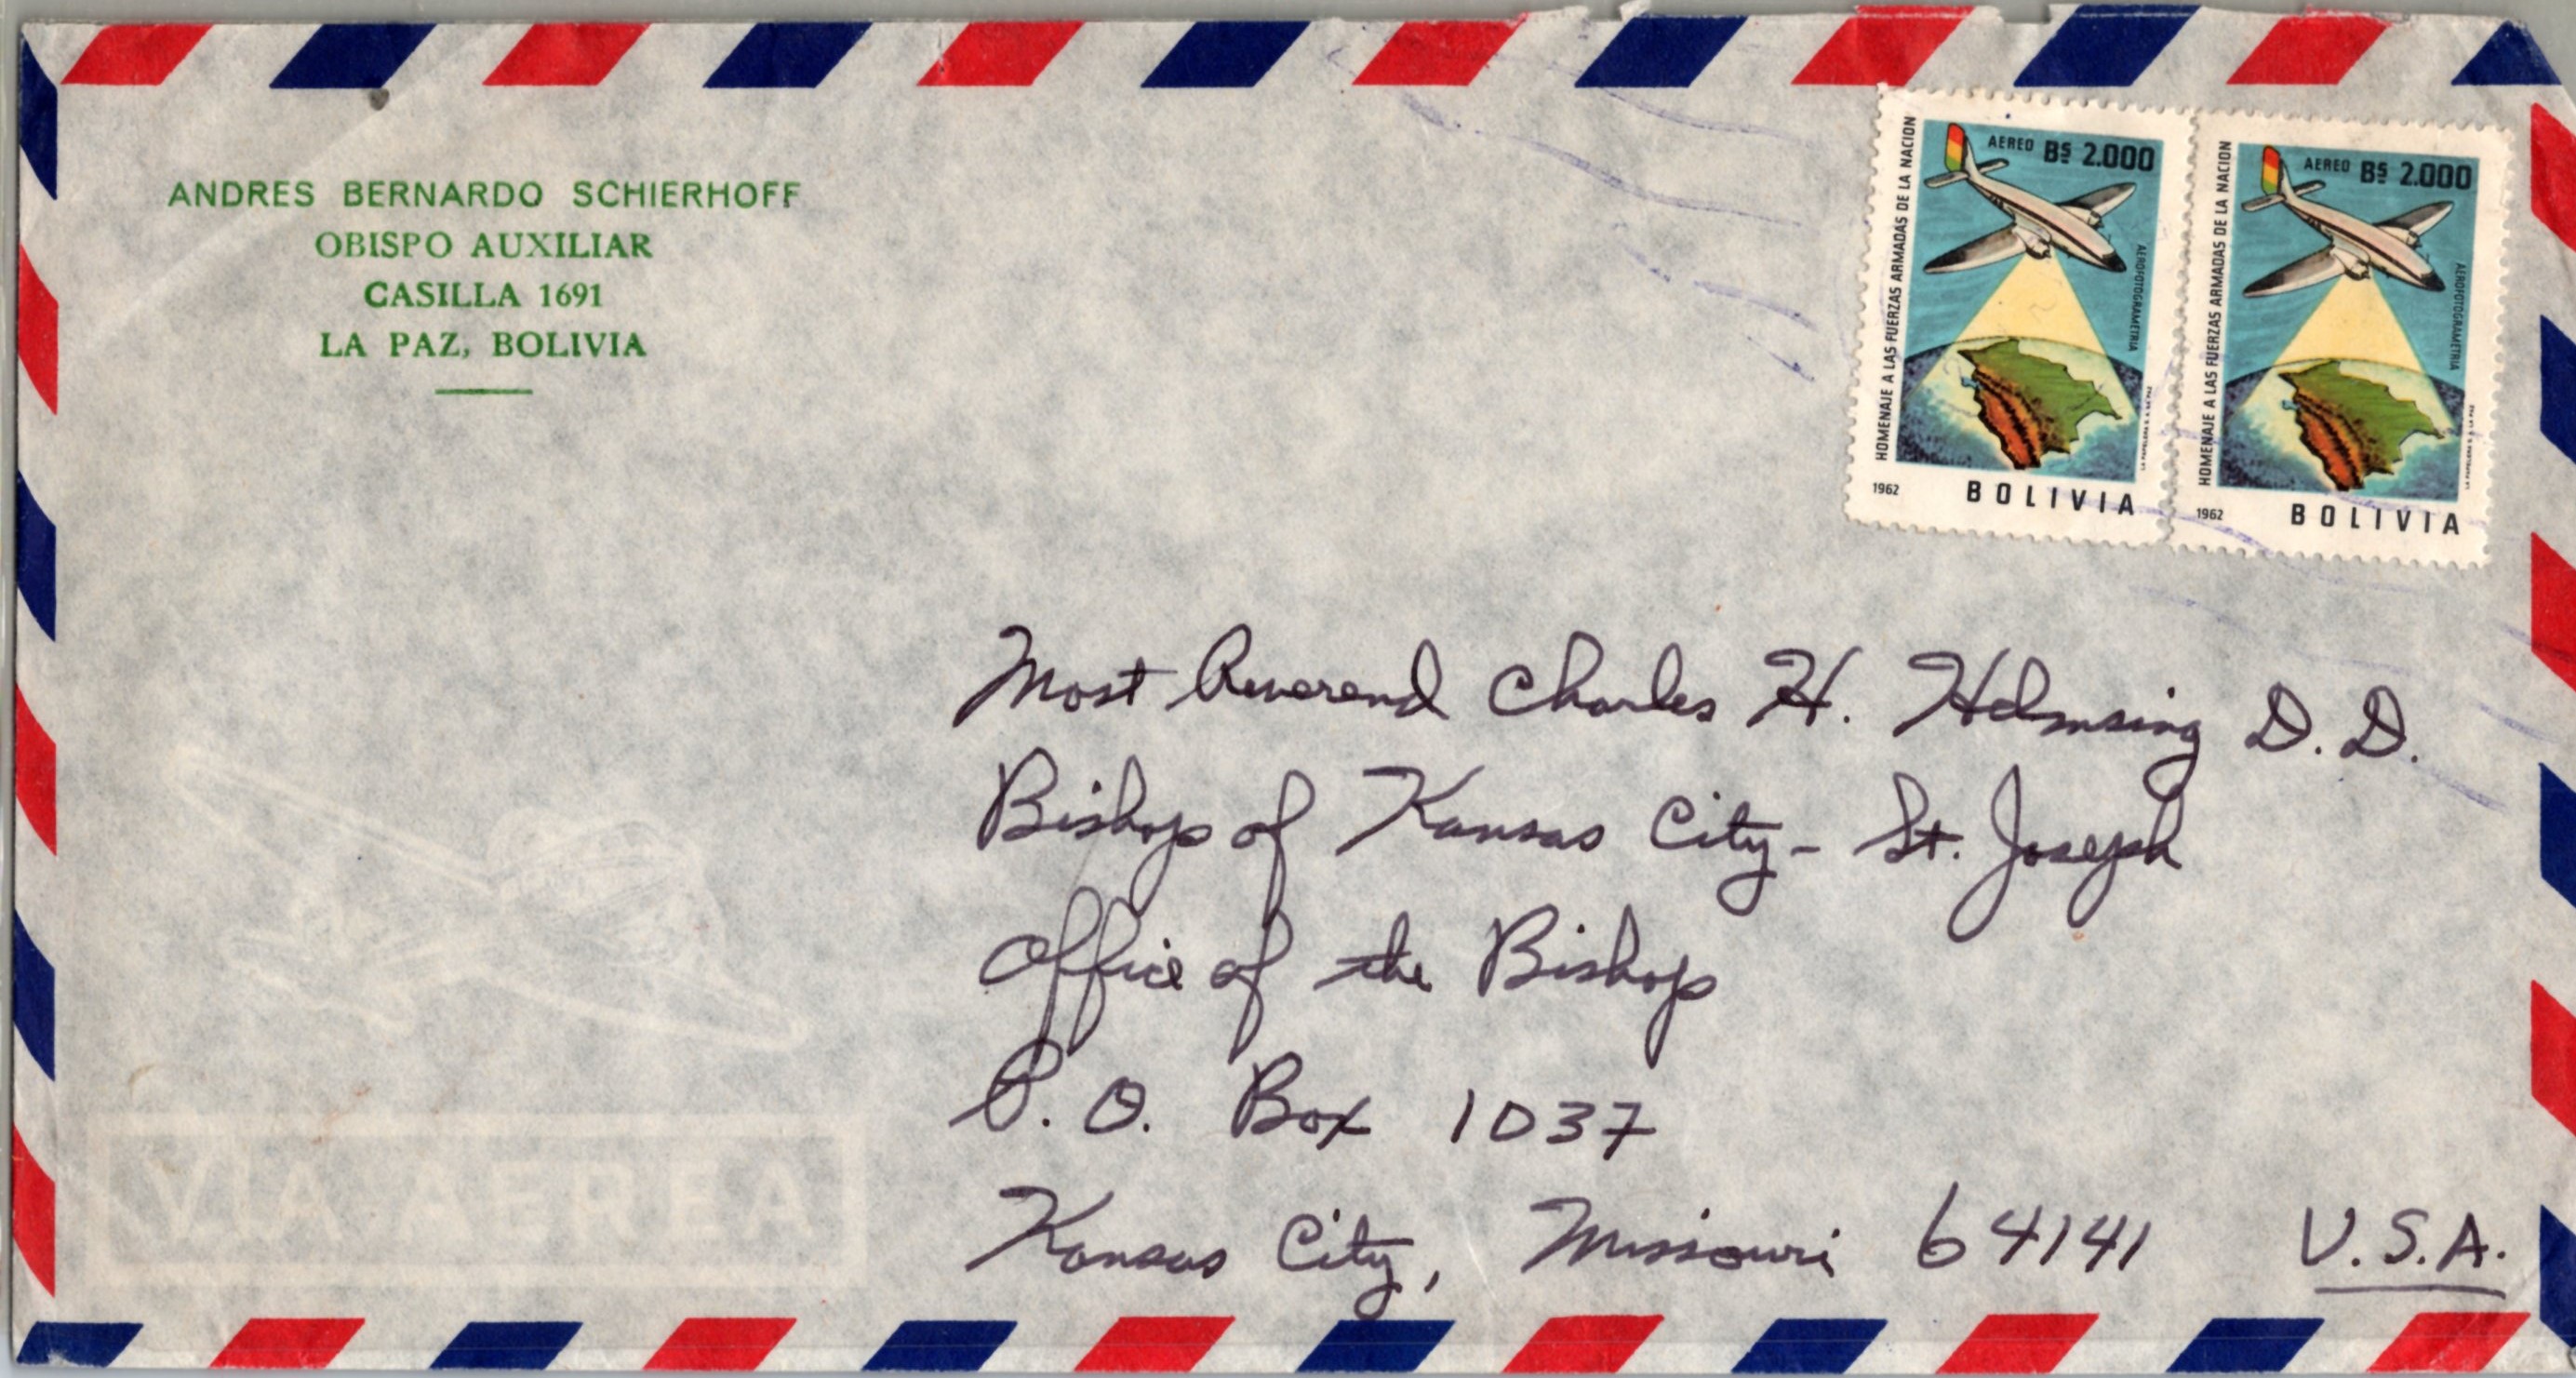 ANDRES BERNARDO SCHIERHOFF
OBISPO AUXILIAR
CASILLA 1691
LA PAZ, BOLIVIA
HOMENAJE A LAS FUERZAS ARMADAS DE LA NACION
AEREO Bs 2.000
AEROFOTOGRAMETRIA
1962 BOLIVIA
HOMENAJE A LAS FUERZAS ARMADAS DE LA NACION
AEREO Bs 2.000
AEROFOTOGRAMETRIA
1962 BOLIVIA
Most Reverend Charles H. Helmsing D.D.
Bishop of Kansas City - St. Joseph
Office of the Bishop
P.O. Box 1037
Kansas City, Missouri 64141 U.S.A.
VIA AEREA